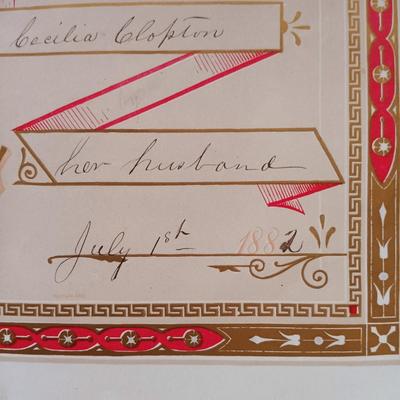 Cecilia Clopton
her husband
July 1st 1882